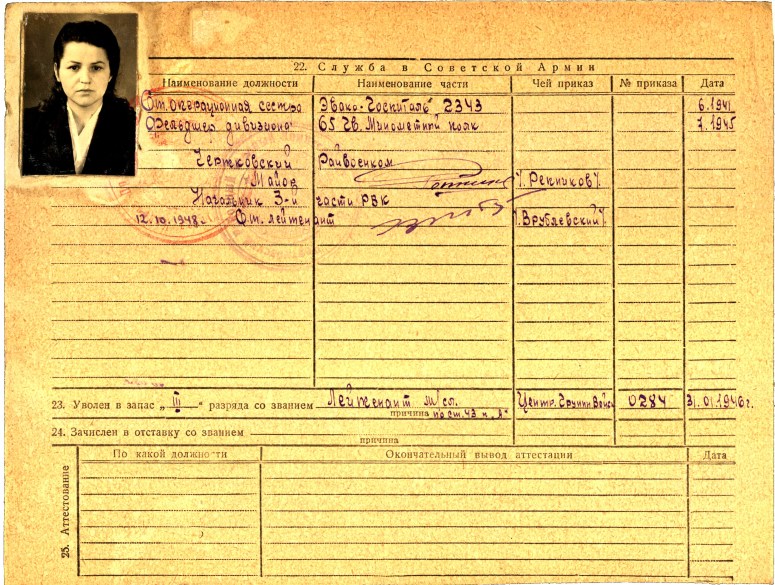 22. Служба в Советской Армии
Наименование должности Наименование части Чей приказ № приказа Дата
Ст. операционная сестра Эвако-Госпиталь 2343 6.1941
Фельдшер дивизиона 65 Гв. Минометный полк 7.1945
Чертковский Райвоенком
Майор /Репников/
Начальник 3-й части РВК
12.10.1948г. Ст. лейтенант /Врублевский/
23. Уволен в запас „III“ разряда со званием Лейтенант м/сл. Центр. Группы Войск 0284 31.01.1946г.
причина по ст. 43 п. „А“
24. Зачислен в отставку со званием
причина
25. Аттестование
По какой должности Окончательный вывод аттестации Дата